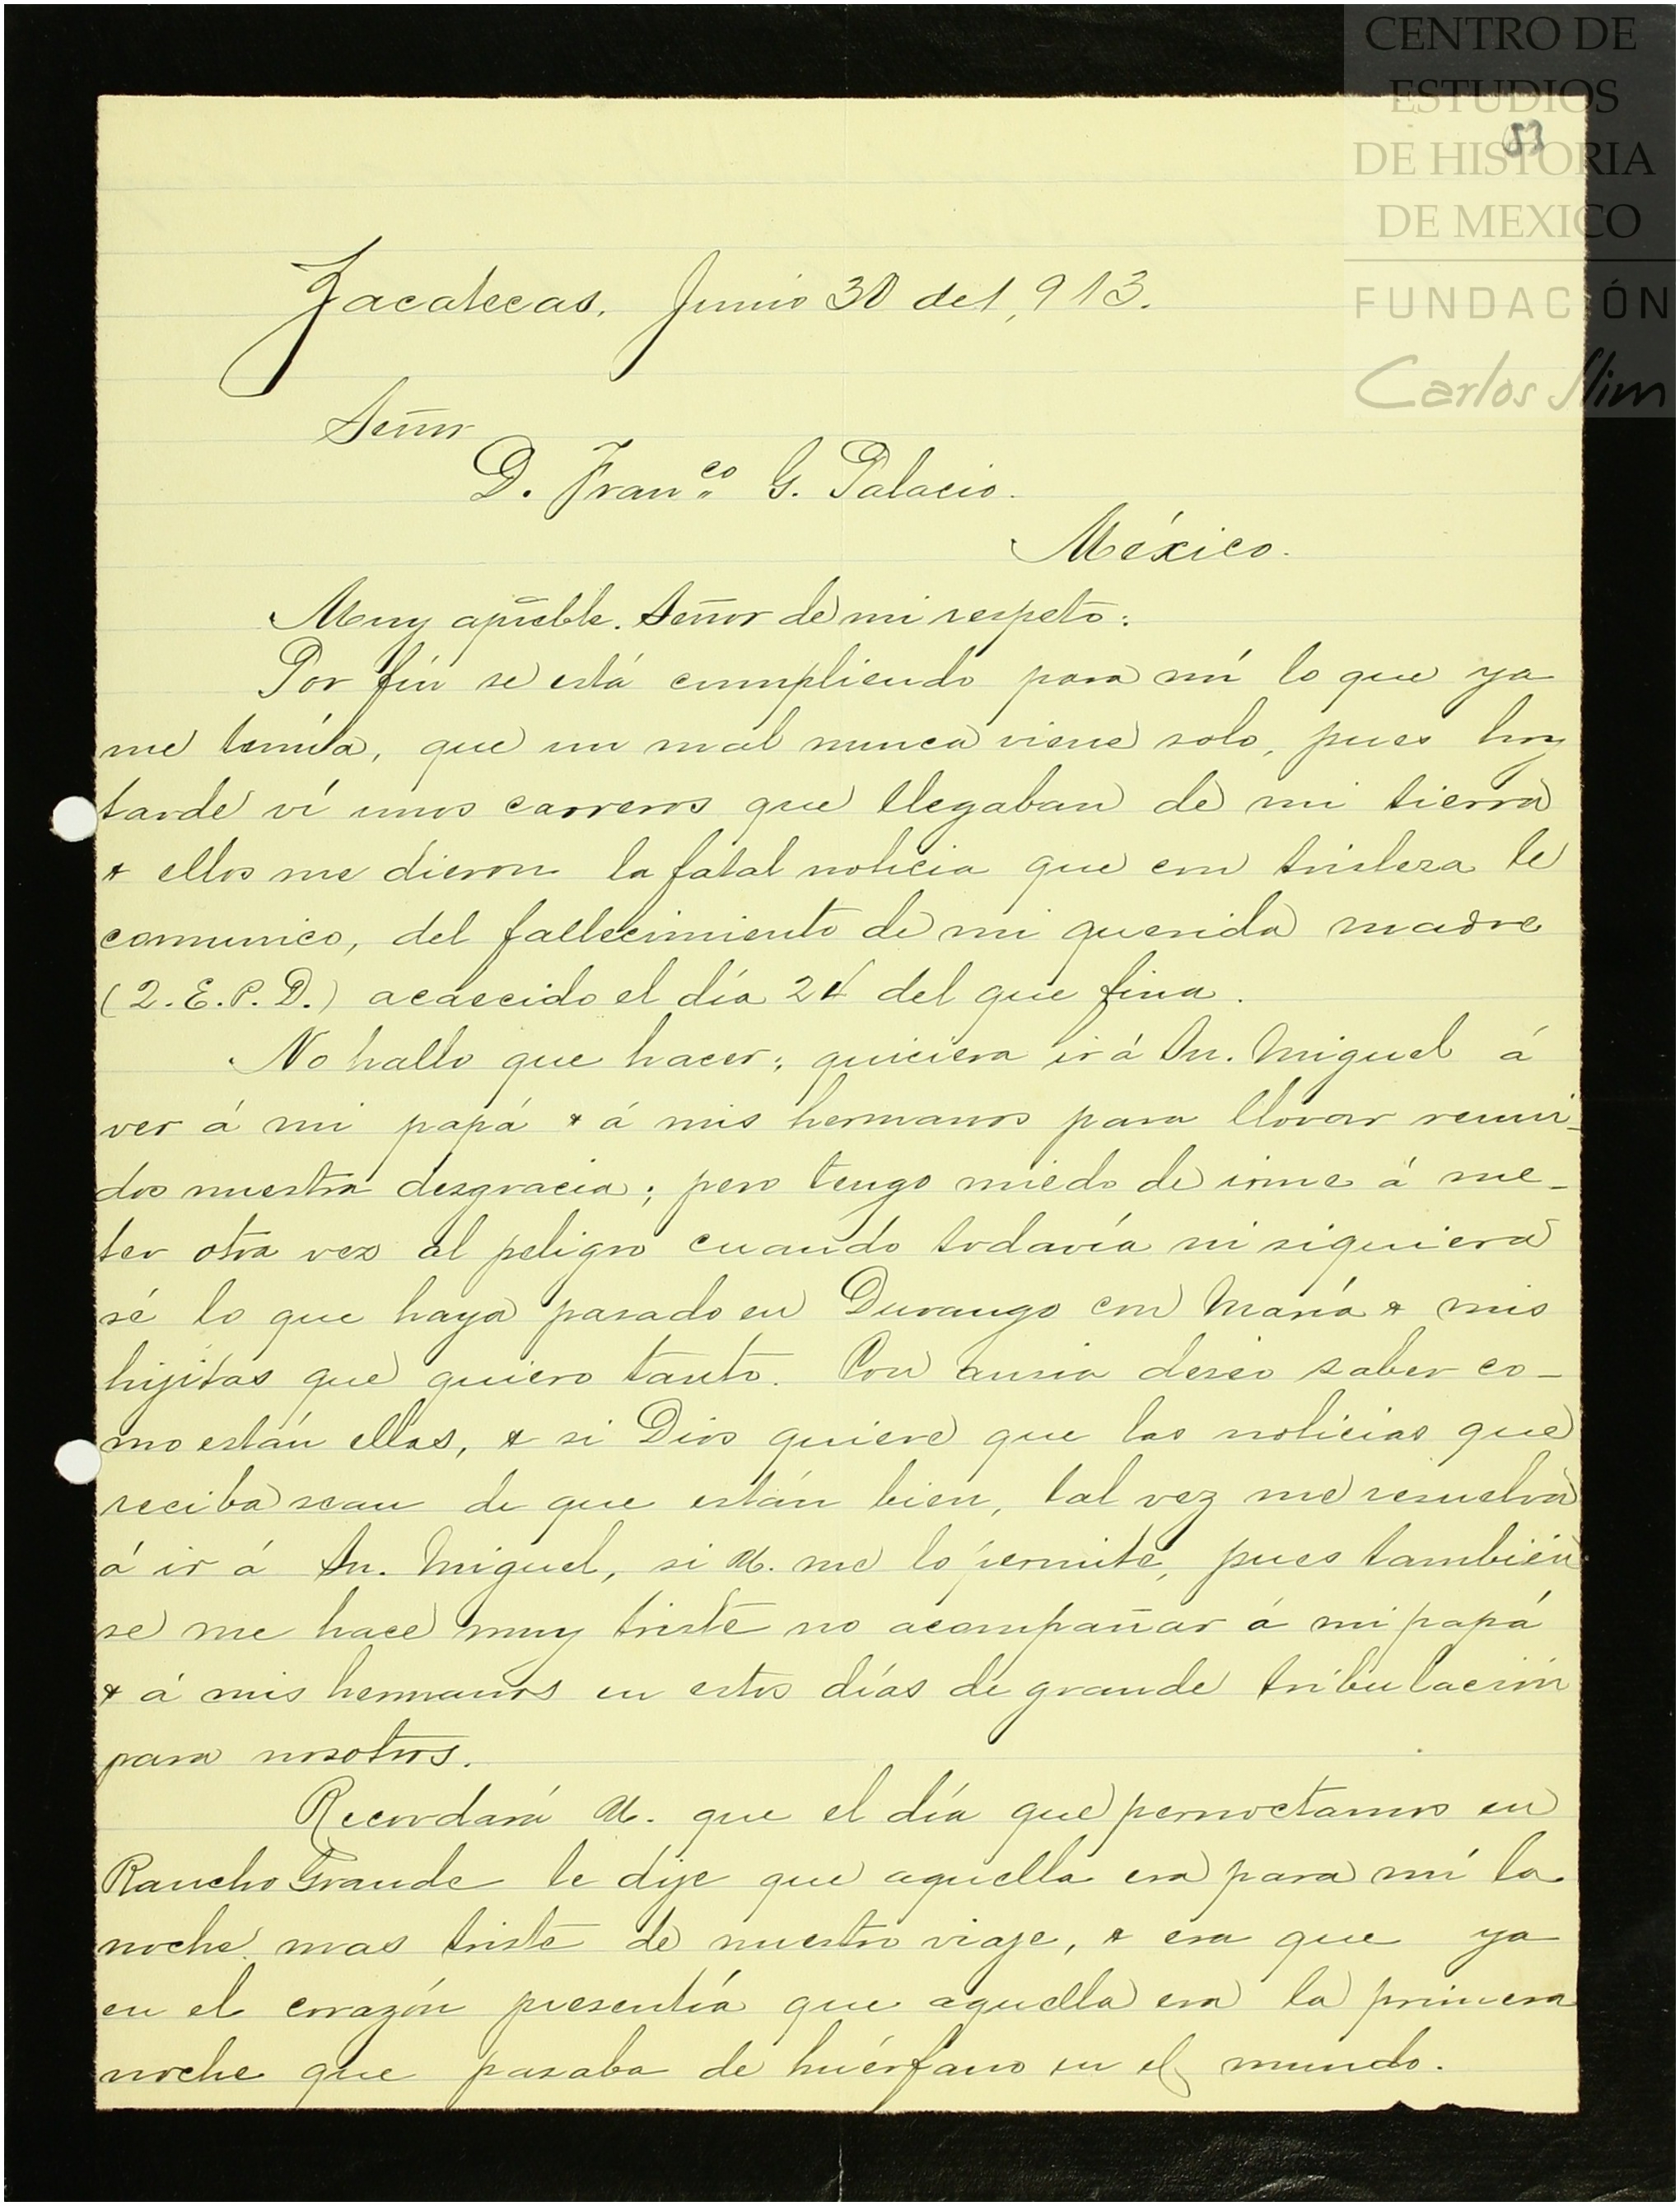 CENTRO DE
ESTUDIOS
DE HISTORIA
DE MEXICO
FUNDACIÓN
Carlos Slim
Zacatecas, Junio 30 de 1,913.
Señor
D. Franco G. Palacio.
México.
Muy apreble. Señor de mi respeto:
Por fin se está cumpliendo para mí lo que ya
me temía, que un mal nunca viene solo, pues hoy
tarde ví unos carreros que llegaban de mi tierra
& ellos me dieron la fatal noticia que con tristeza le
comunico, del fallecimiento de mi querida madre
(Q.E.P.D.) acaecido el día 24 del que fina.
No hallo que hacer; quiciera ir á Sn. Miguel á
ver á mi papá & á mis hermanos para llorar reuni-
dos nuestra desgracia; pero tengo miedo de irme á me-
ter otra vez al peligro cuando todavía ni siquiera
sé lo que haya pasado en Durango con María & mis
hijitas que quiero tanto. Con ansia deseo saber co-
mo están ellas, & si Dios quiere que las noticias que
reciba sean de que están bien, tal vez me resuelva
á ir á Sn. Miguel, si U. me lo permite, pues también
se me hace muy triste no acompañar á mi papá
& á mis hermanos en estos días de grande tribulación
para nosotros.
Recordará U. que el día que pernoctamos en
Rancho Grande le dije que aquella era para mí la
noche mas triste de nuestro viaje, & era que ya
en el corazón presentía que aquella era la primera
noche que pasaba de huérfano en el mundo.